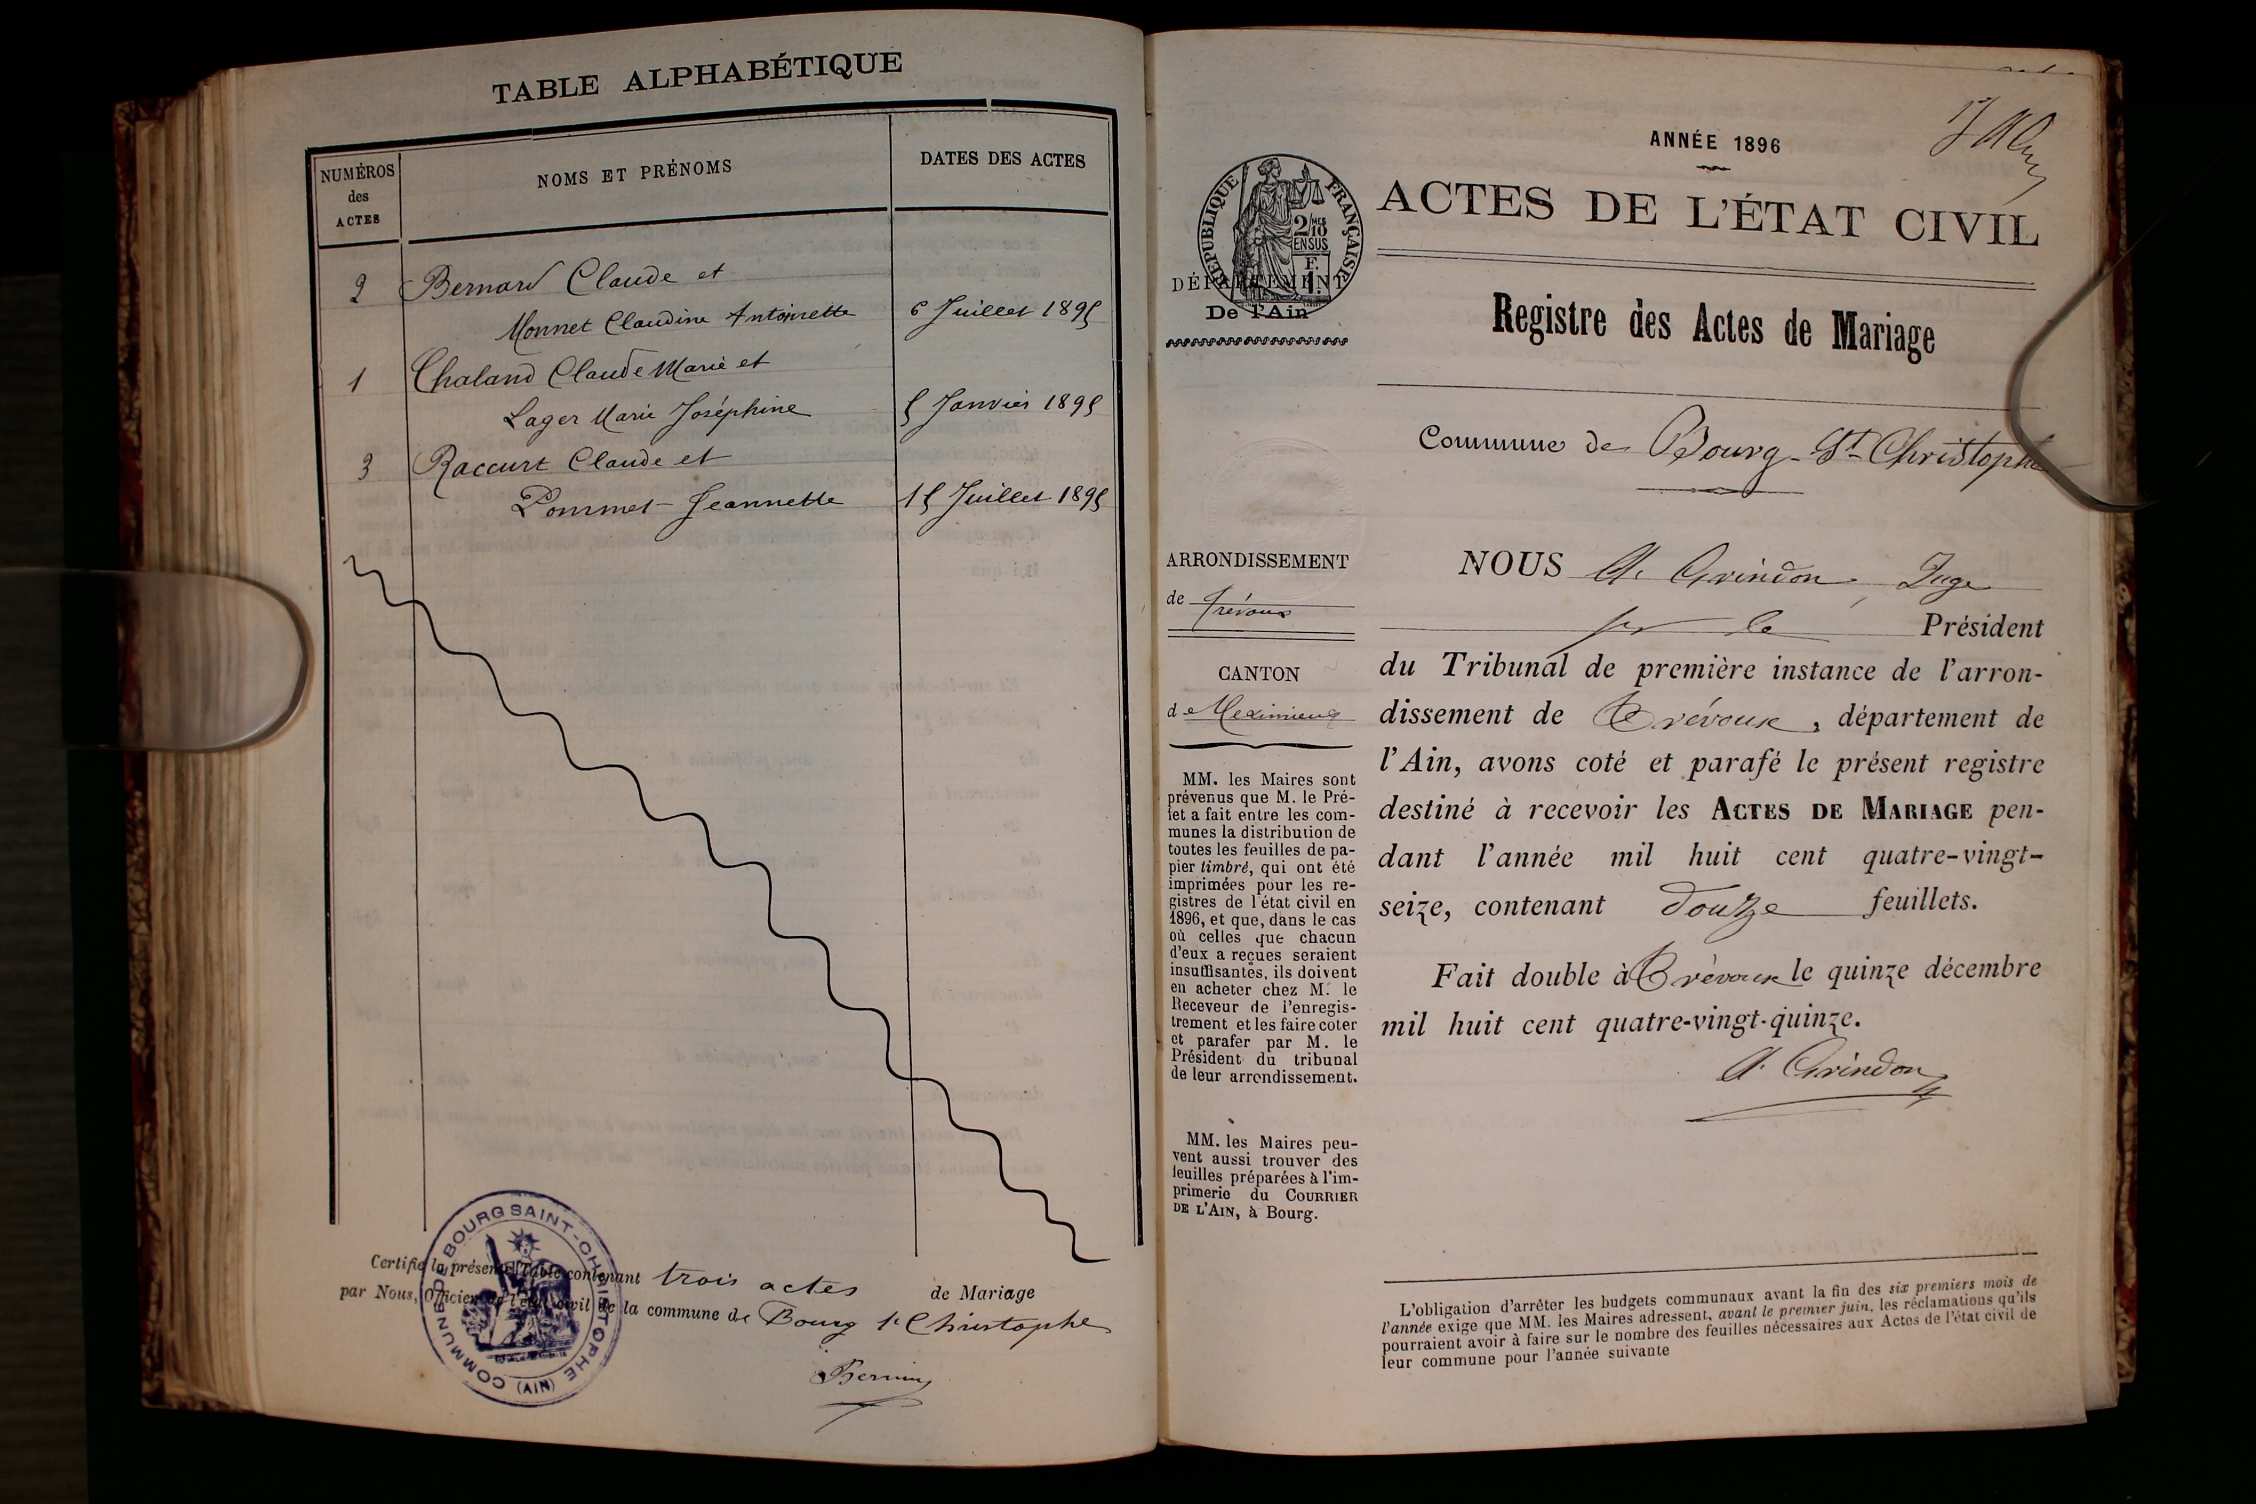 TABLE ALPHABÉTIQUE
NUMÉROS
des
ACTES
NOMS ET PRÉNOMS
DATES DES ACTES
2 Bernard Claude et
Monnet Claudine Antoinette 6 Juillet 1895
1 Chaland Claude Marie et
Lager Marie Joséphine 5 Janvier 1895
3 Raccurt Claude et
Pommet Jeannette 15 Juillet 1895
Certifié la présente Table contenant trois actes de Mariage
par Nous, Officier de l'état civil de la commune de Bourg St Christophe
COMMUNE DE BOURG SAINT-CHRISTOPHE (AIN)
ANNÉE 1896
ACTES DE L'ÉTAT CIVIL
RÉPUBLIQUE FRANÇAISE
2/10 MES
EN SUS
F.
1.
DÉPARTEMENT
De l'Ain
Registre des Actes de Mariage
Commune de Bourg-St-Christophe
ARRONDISSEMENT
de Trévoux
CANTON
de Meximieux
MM. les Maires sont
prévenus que M. le Pré-
fet a fait entre les com-
munes la distribution de
toutes les feuilles de pa-
pier timbré, qui ont été
imprimées pour les re-
gistres de l'état civil en
1896, et que, dans le cas
où celles que chacun
d'eux a reçues seraient
insuffisantes, ils doivent
en acheter chez M. le
Receveur de l'enregis-
trement et les faire coter
et parafer par M. le
Président du tribunal
de leur arrondissement.
MM. les Maires peu-
vent aussi trouver des
feuilles préparées à l'im-
primerie du COURRIER
DE L'AIN, à Bourg.
NOUS A. Grindon, Juge
pr le Président
du Tribunal de première instance de l'arron-
dissement de Trévoux, département de
l'Ain, avons coté et parafé le présent registre
destiné à recevoir les ACTES DE MARIAGE pen-
dant l'année mil huit cent quatre-vingt-
seize, contenant douze feuillets.
Fait double à Trévoux le quinze décembre
mil huit cent quatre-vingt-quinze.
A. Grindon
L'obligation d'arrêter les budgets communaux avant la fin des six premiers mois de
l'année exige que MM. les Maires adressent, avant le premier juin, les réclamations qu'ils
pourraient avoir à faire sur le nombre des feuilles nécessaires aux Actes de l'état civil de
leur commune pour l'année suivante